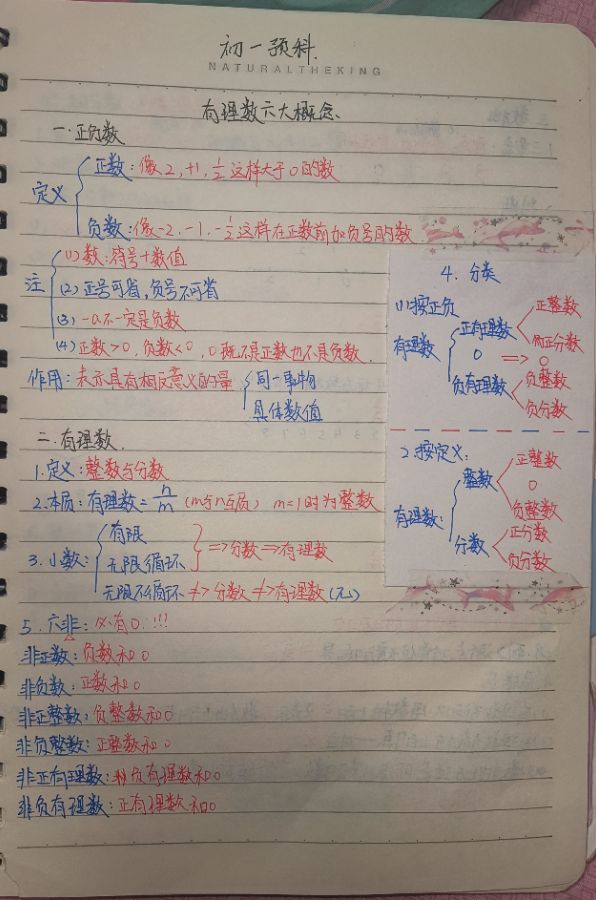 初一预科
NATURALTHEKING
有理数六大概念
一.正负数
定义
正数:像2,+1,1/2这样大于0的数
负数:像-2,-1,-1/2这样在正数前加负号的数
注
(1)数:符号+数值
(2)正号可省,负号不可省
(3)-a不一定是负数
(4)正数>0,负数<0,0既不是正数也不是负数.
作用:表示具有相反意义的量
同一事物
具体数值
二.有理数.
1.定义:整数与分数
2.本质:有理数=n/m (m与n互质) m=1时为整数
3.小数:
有限
无限循环
=>分数=>有理数
无限不循环≠>分数≠>有理数(π)
4.分类
(1)按正负
有理数
正有理数
正整数
正分数
0 => 0
负有理数
负整数
负分数
2.按定义:
有理数:
整数
正整数
0
负整数
分数
正分数
负分数
5.六非:必有0.!!!
非正数:负数和0
非负数:正数和0
非正整数:负整数和0
非负整数:正整数和0
非正有理数:负有理数和0
非负有理数:正有理数和0